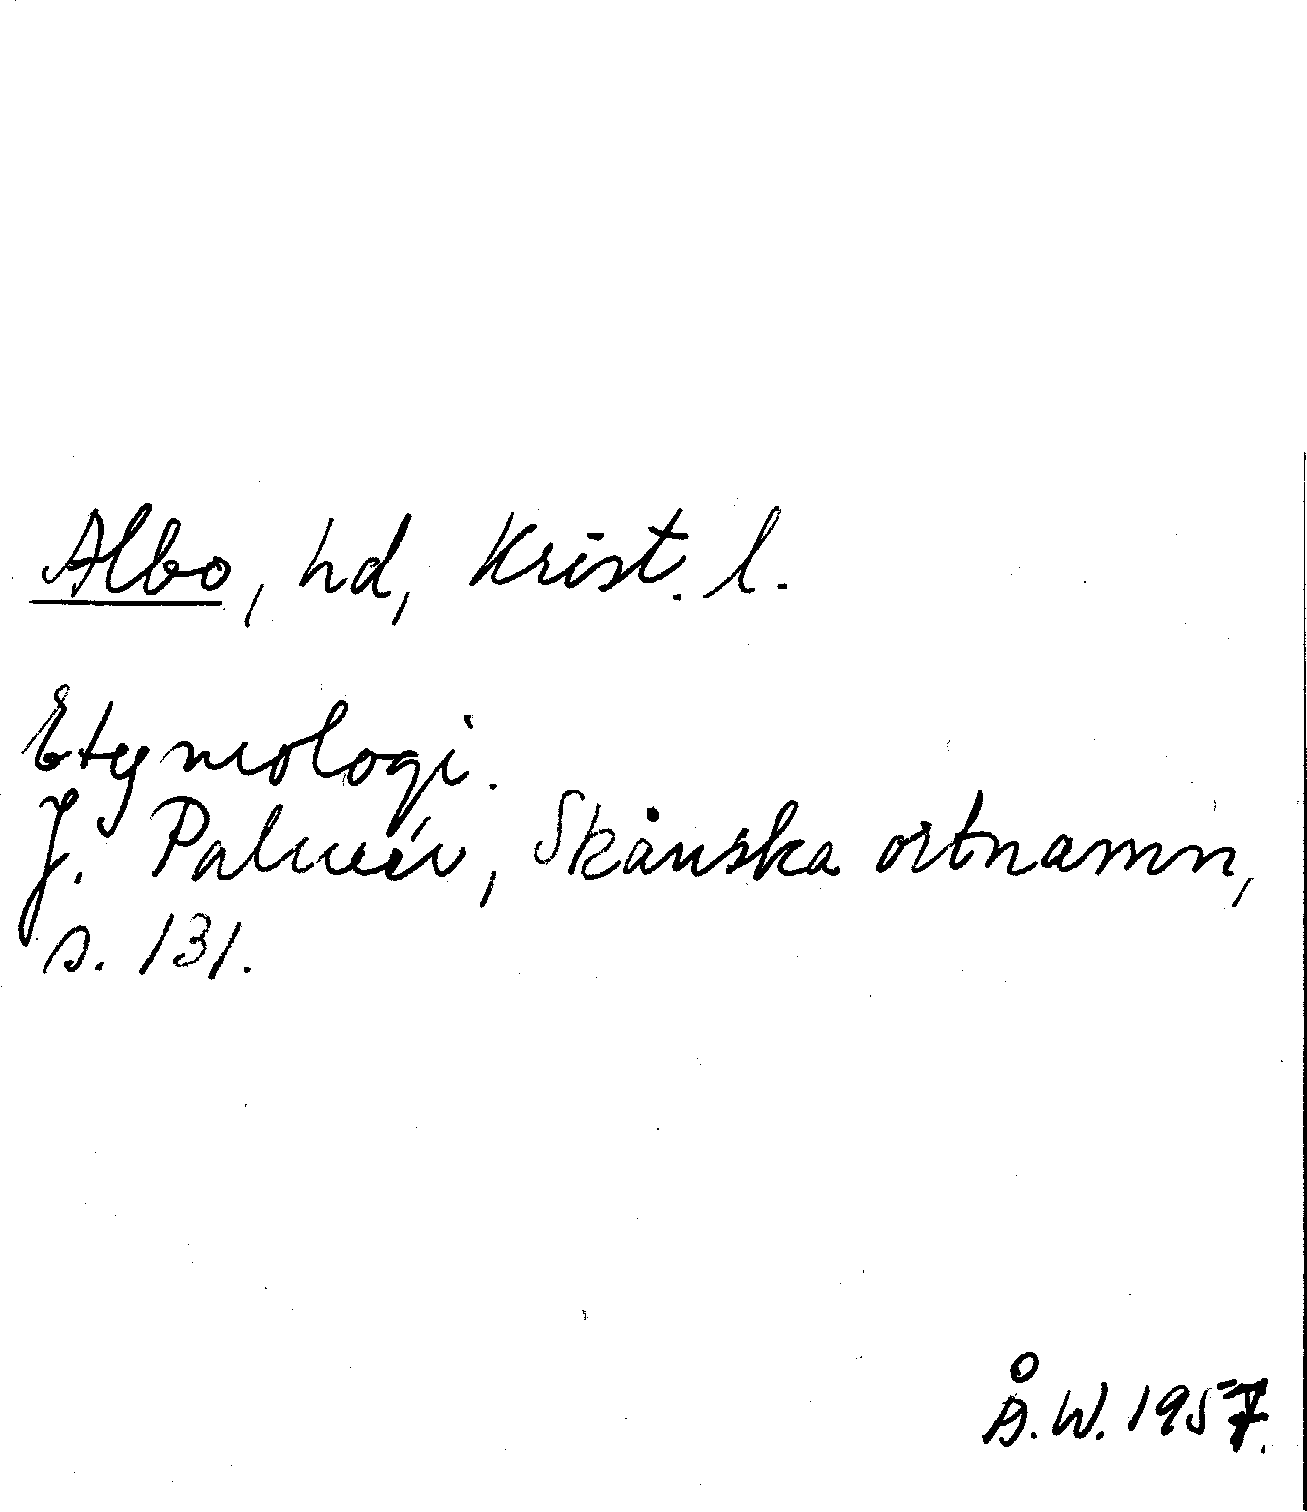 Albo, hd, Krist. l.
Etymologi.
J. Palmér, Skånska ortnamn,
s. 131.
Å.W. 1957.